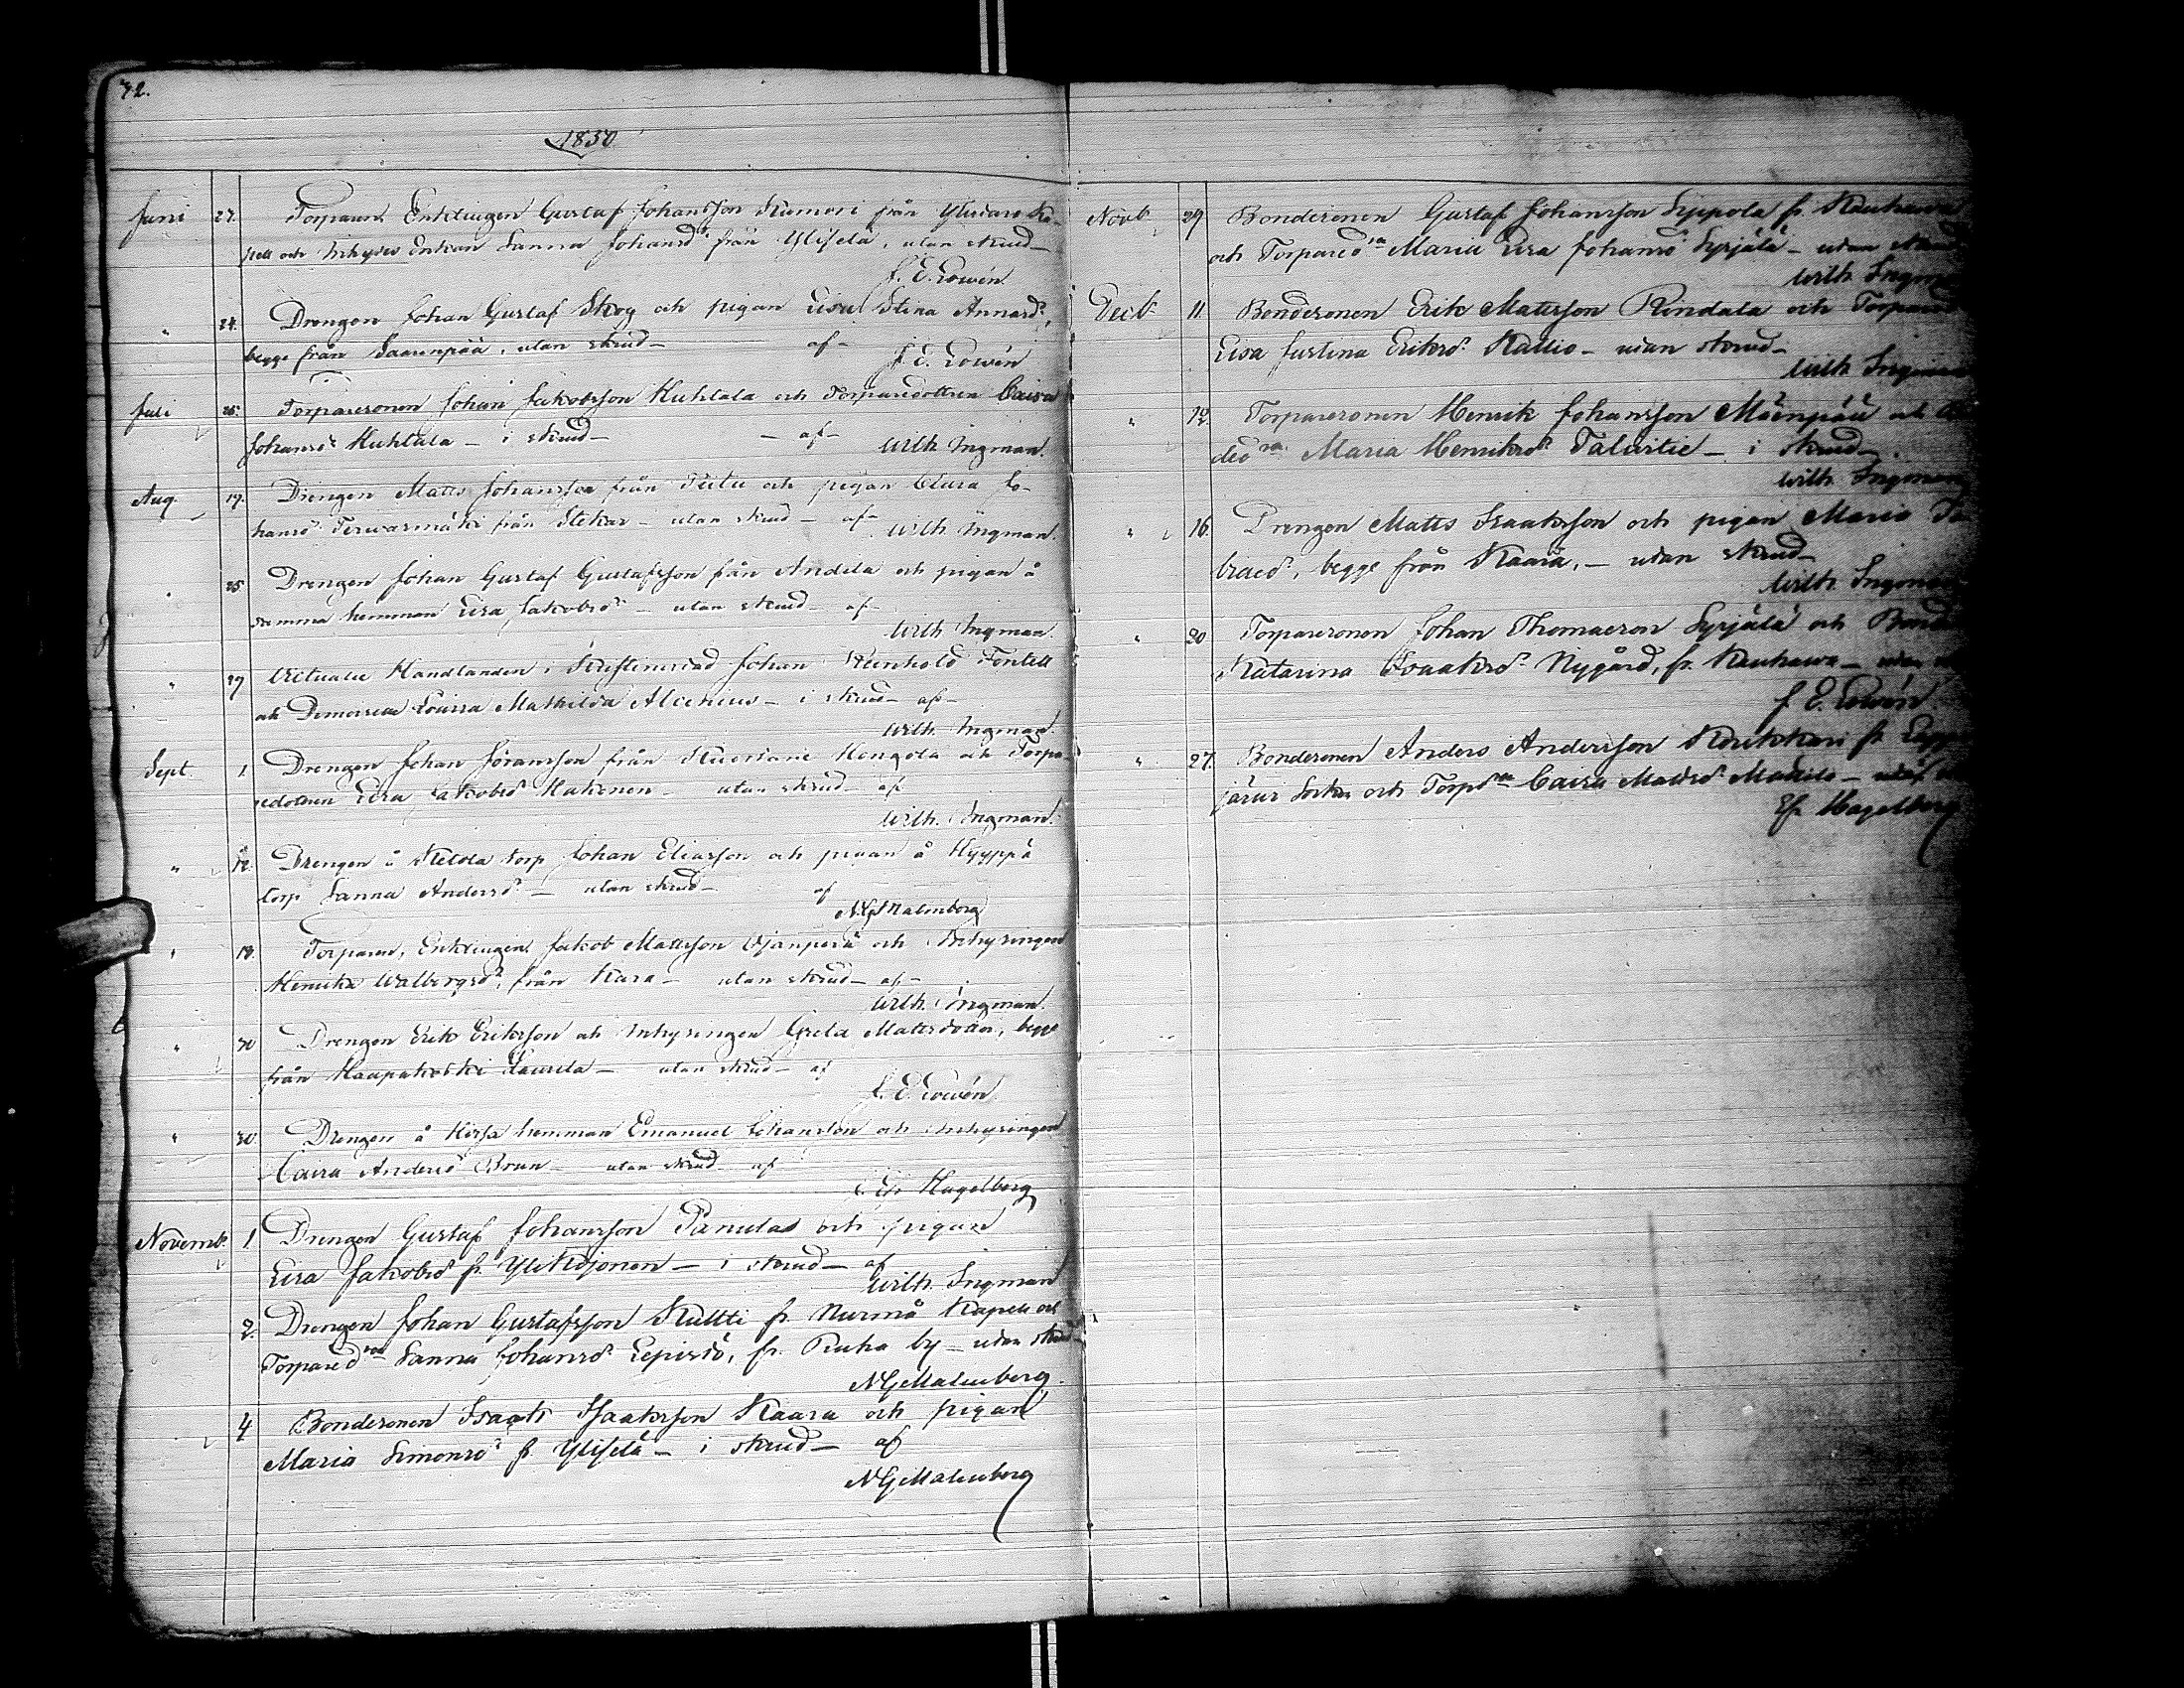 72.
1850
Juni 27. Torparen, Enklingen Gustaf Johansson från Ylistaro Ka-
pell och Inhyses Enkan Sanna Johansd:r från Ylisela, utan skrud—
J. E. Lowén
" 24. Drengen Johan Gustaf Skog och pigan Lisa Stina Annasd:r,
begge från Saarenpää, utan skrud— af—
J. E. Lowén
Juli 25. Torparesonen Johan Jakobsson Huhtala och Torparedottren Caisa
Johansd:r Huhtala — i skrud— — af—
Wilh. Ingman.
Aug. 19. Drengen Matts Johansson från och pigan Clara Jo-
hansd:r Terwasmäki från Stekar — utan skrud — af—
Wilh. Ingman.
" 25 Drengen Johan Gustaf Gustafsson från Andila och pigan å
samma hemman Lisa Jakobsd:r — utan skrud— af—
Wilh. Ingman.
" 29 Victualie Handlanden i Kristinestad Johan Reinhold Fontell
och Demoiselle Lovisa Mathilda Alcenius — i skrud— af—
Wilh. Ingman.
Sept. 1. Drengen Johan Jöransson från Kuortane Hongola och Torpa-
redottren Lisa Jakobsd:r Hakonen — utan skrud— af
Wilh. Ingman.
" 12. Drengen å torp Johan Eliasson och pigan å Hyyppä
torp Sanna Andersd:r — utan skrud— af
N. G. Malmberg
" 19. Torparen, Enklingen Jakob Mattsson Ojanperä och Inhysingen
Henrika Walbergsd:r, från Kara — utan skrud— af—
Wilh. Ingman.
" 30 Drengen Erik Eriksson och Inhysingen Greta Mattsdotter, begge
från Haapakoski Laurila — utan skrud— af
J. E. Lowén.
" 30. Drengen å hemman Emanuel Johansson och Inhysingen
Caisa Andersd:r Brun — utan skrud— af
Ef. Hagelberg
Novemb. 1. Drengen Gustaf Johansson Panula och pigan
Lisa Jakobsd:r fr. — i skrud— af
Wilh. Ingman
2. Drengen Johan Gustafsson Kultti fr. Nurmå Kapell och
Torpared:ren Sanna Johansd:r Lepistö, fr. Ruha by — utan skrud—
N G Malmberg.
4 Bondesonen Isaak Isaaksson Kaara och pigan
Maria Simonsd:r fr. Ylisela — i skrud— af
N G Malmberg
Novb. 29 Bondesonen Gustaf Johansson Lippola fr. Kauhava
och Torpared:ra Maria Lisa Johansd:r Syrjälä — utan skrud
Wilh. Ingm
Decb. 11. Bondesonen Erik Mattsson Rindala och Torpared
Lisa Justina Eriksd:r Kallio — utan skrud—
Wilh. Ingman
" 12. Torparesonen Henrik Johansson Mäenpää och
ded:ra Maria Henriksd:r Talvitie — i skrud—
Wilh. Ingman
" 16. Drengen Matts Isaaksson och pigan Maria To
biaed:r, begge från Kaara, — utan skrud—
Wilh. Ingman
" 20 Torparesonen Johan Thomaeson Syrjälä och Bonde
Katarina Isaaksd:r Nygård, fr. Kauhawa — utan
J. E. Lowén.
" 27. Bondesonen Anders Andersson fr. Lappa
järvi Socken och Torpd:ra Caisa Mattsd:r Makila — utaf
Ef. Hagelberg